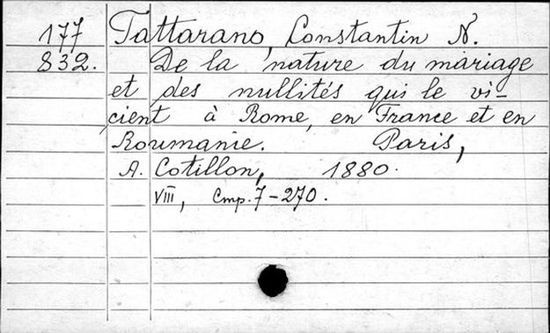 177 Tattarano, Constantin N.
832. De la nature du mariage
et des nullités qui le vi-
cient à Rome, en France et en
Roumanie. Paris,
A. Cotillon, 1880.
VIII, Cmp. 7-270.